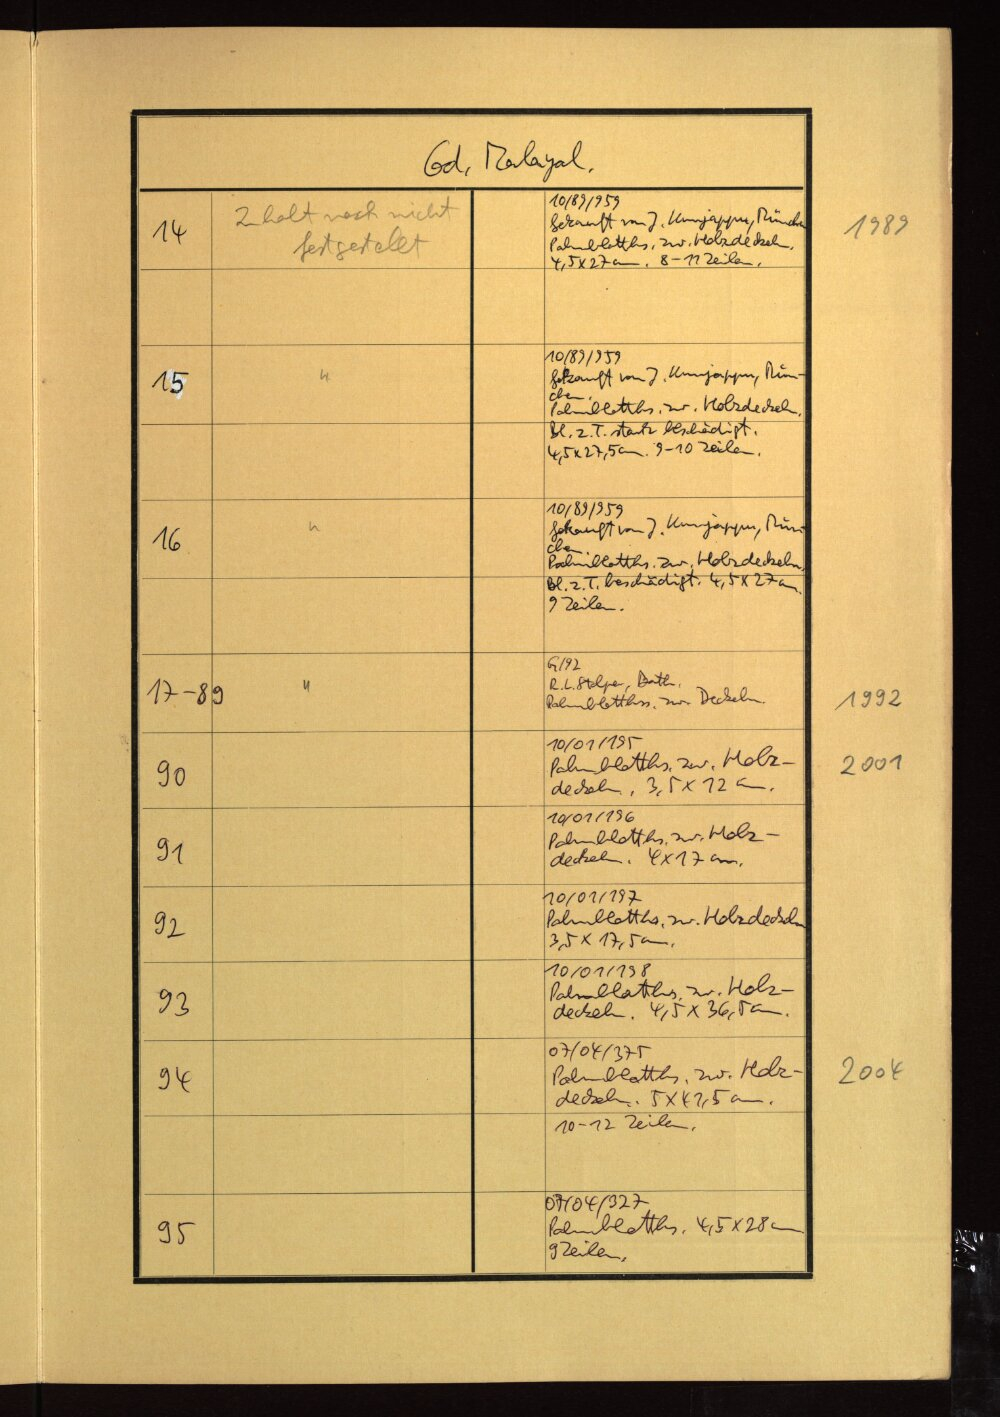 Cod. Malayal.
14
Inhalt noch nicht
festgestellt
10/89/959
Gekauft von J. Kunnjappu, München
Palmblatths. zw. Holzdeckeln.
4,5x27 cm. 8-11 Zeilen.
1989
15
"
10/89/959
Gekauft von J. Kunnjappu, Mün-
chen.
Palmblatths. zw. Holzdeckeln.
Bl. z.T. stark beschädigt.
4,5x27,5 cm. 9-10 Zeilen.
16
"
10/89/959
Gekauft von J. Kunnjappu, Mün-
chen.
Palmblatths. zw. Holzdeckeln.
Bl. z.T. beschädigt. 4,5x27 cm.
9 Zeilen.
17-89
"
G/92
R.L. Stolper, Bath.
Palmblatthss. zw. Deckeln.
1992
90
10/01/195
Palmblatths. zw. Holz-
deckeln. 3,5x12 cm.
2001
91
10/01/196
Palmblatths. zw. Holz-
deckeln. 4x17 cm.
92
10/01/197
Palmblatths. zw. Holzdeckeln
3,5x17,5 cm.
93
10/01/198
Palmblatths. zw. Holz-
deckeln. 4,5x36,5 cm.
94
07/04/375
Palmblatths. zw. Holz-
deckeln. 5x41,5 cm.
10-12 Zeilen.
2004
95
07/04/927
Palmblatths. 4,5x28 cm
9 Zeilen.